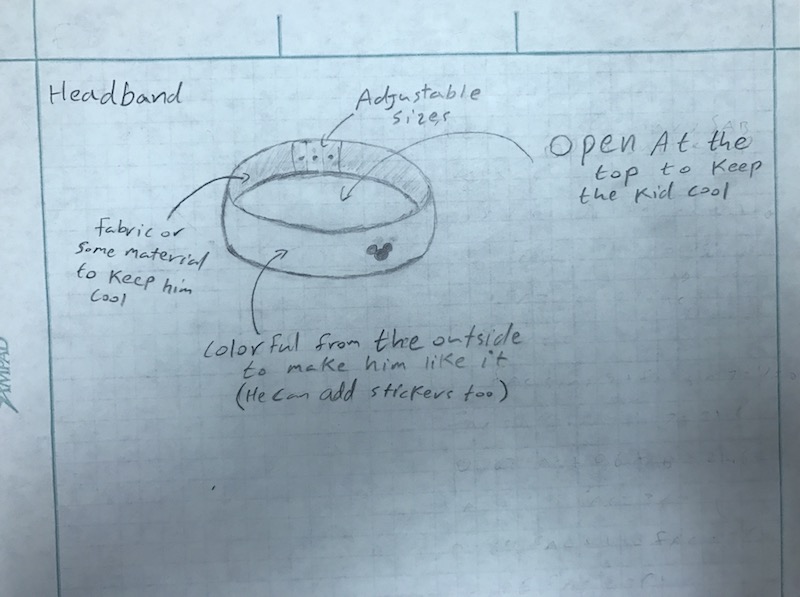 Headband
Adjustable
sizes
Open At the
top to keep
the kid cool
fabric or
some material
to keep him
cool
Colorful from the outside
to make him like it
(He can add stickers too)
AMPAD